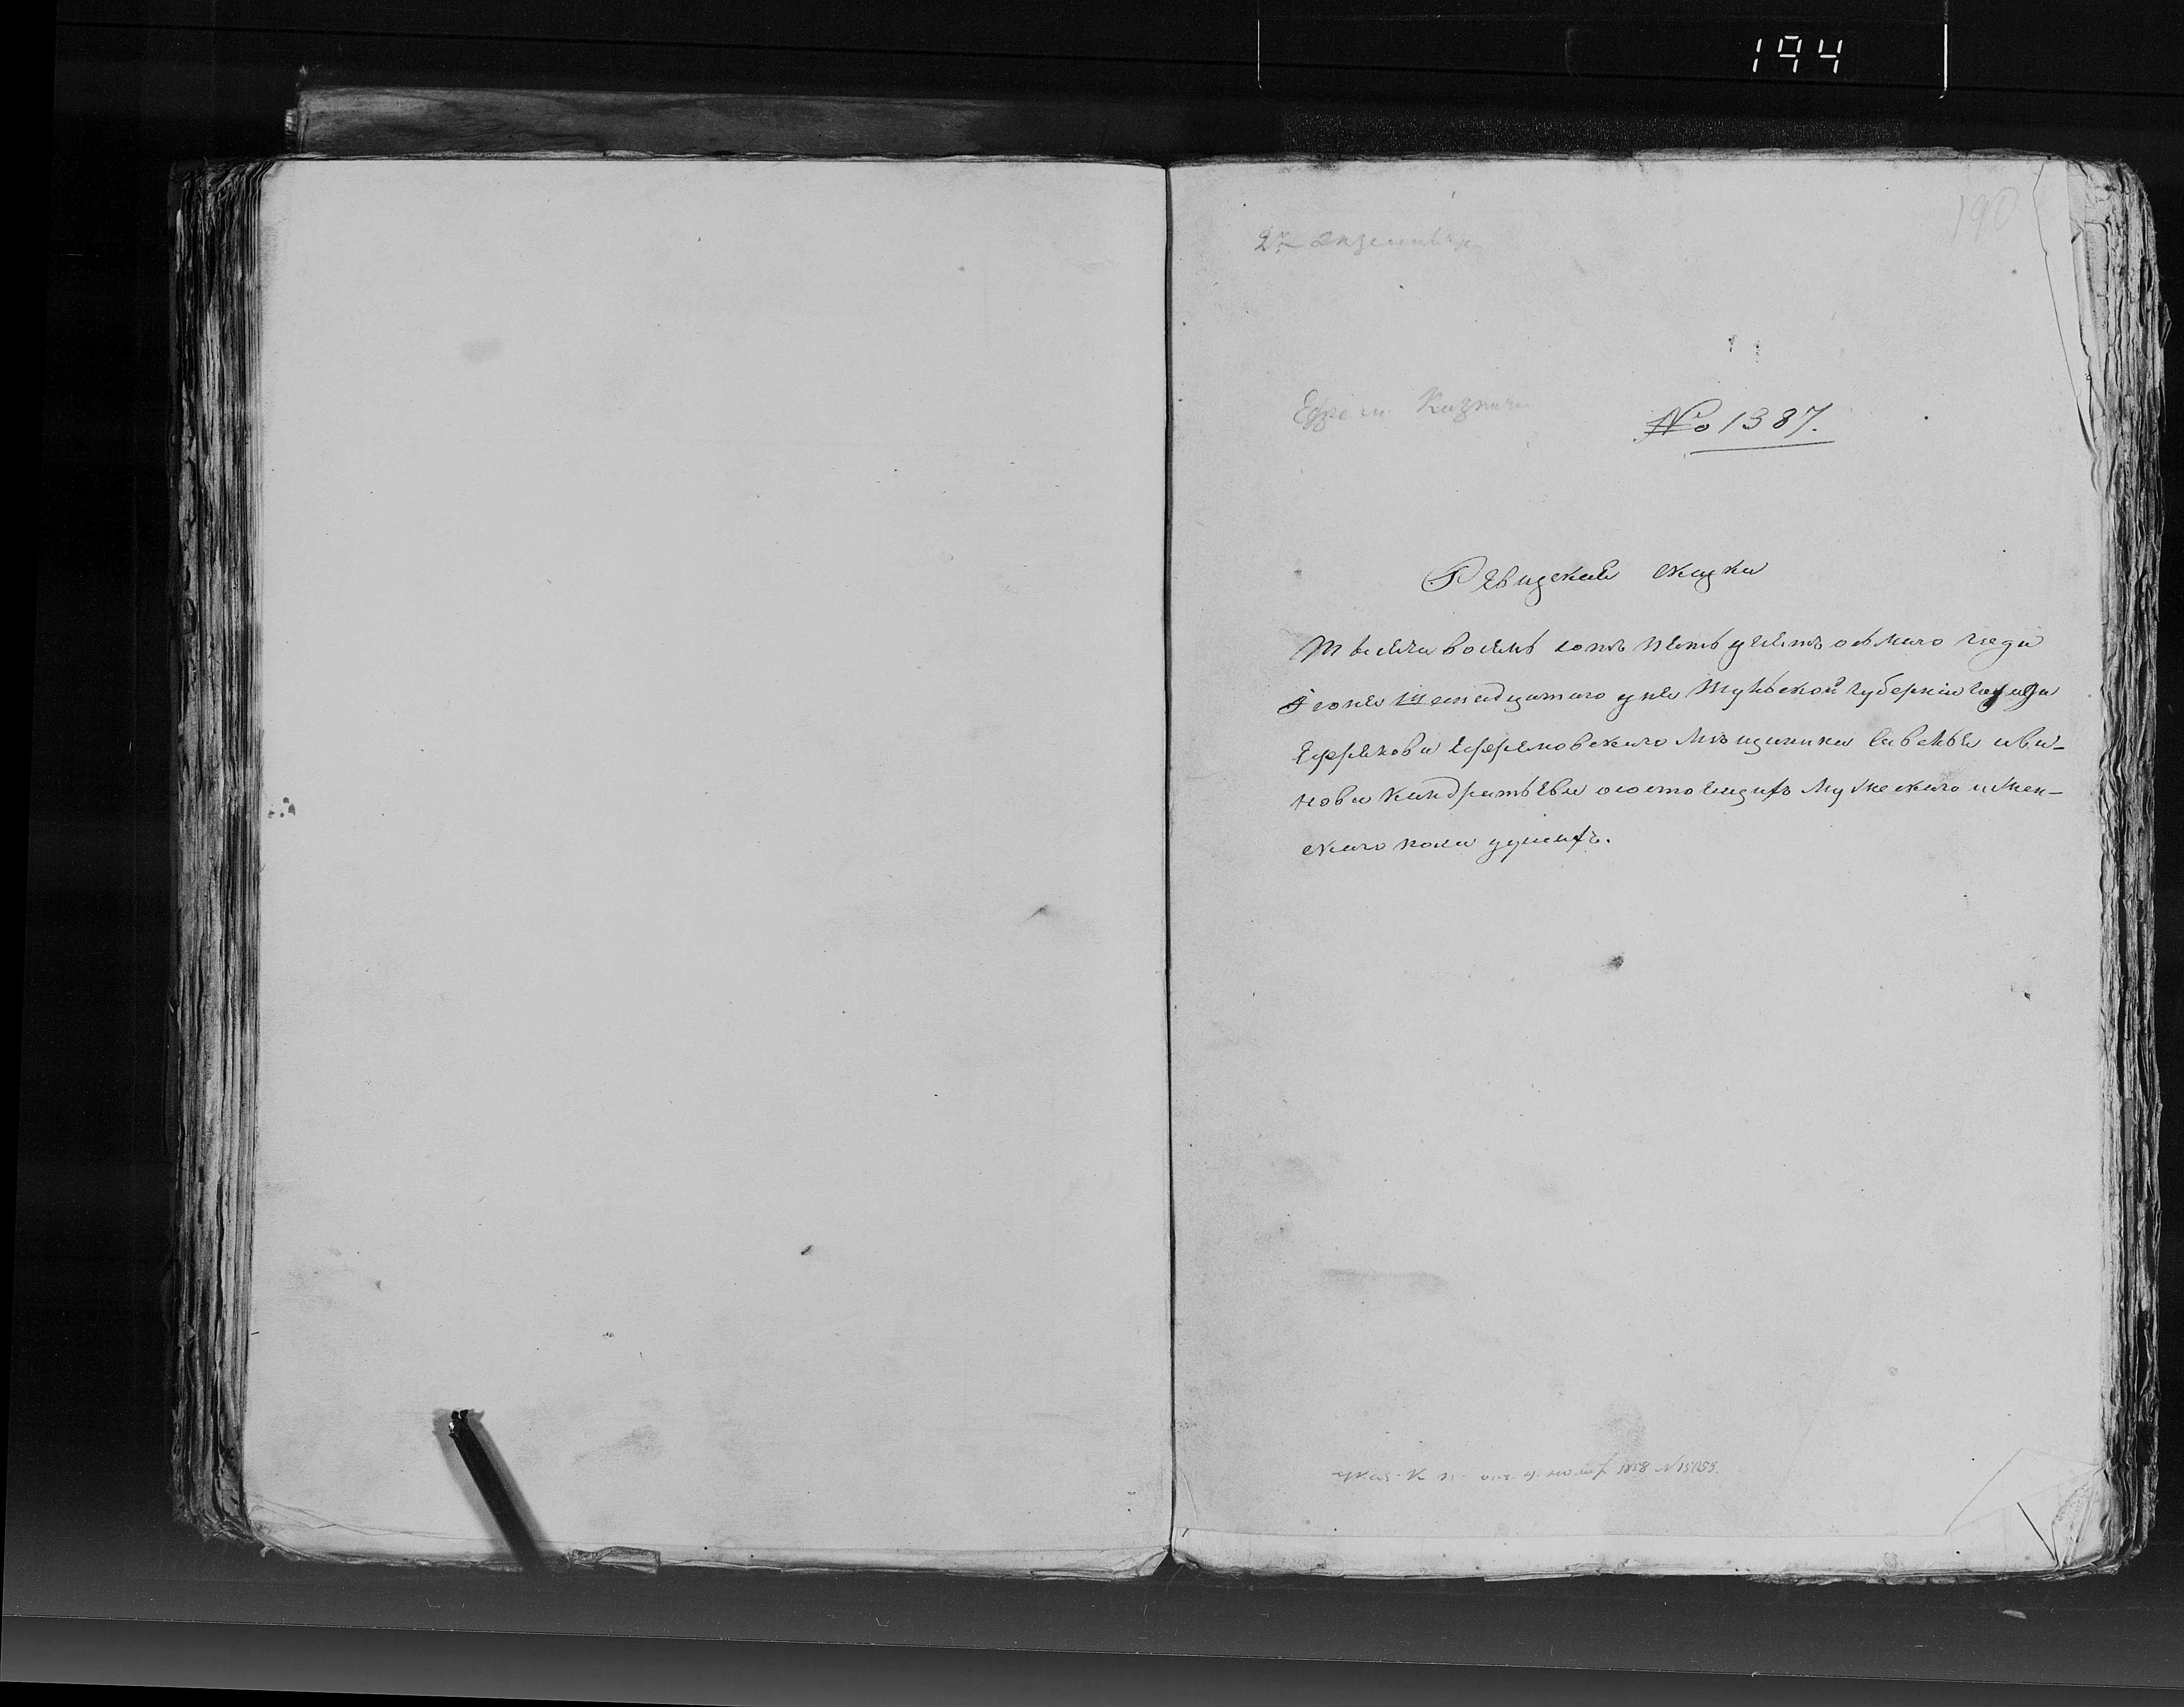 194
190
2й экземпляръ
Ефрем. Казнач
№ 1387.
Ревизская сказка
Тысяча восемь сотъ петьдесятъ осьмаго года
Іюня надцатаго дня Тульской губерніи города
Ефремова Ефремовскаго мѣщанина Савелья ива-
нова Кандратьева осостоящихъ мужескаго иЖен-
скаго пола душахъ.
1858 №